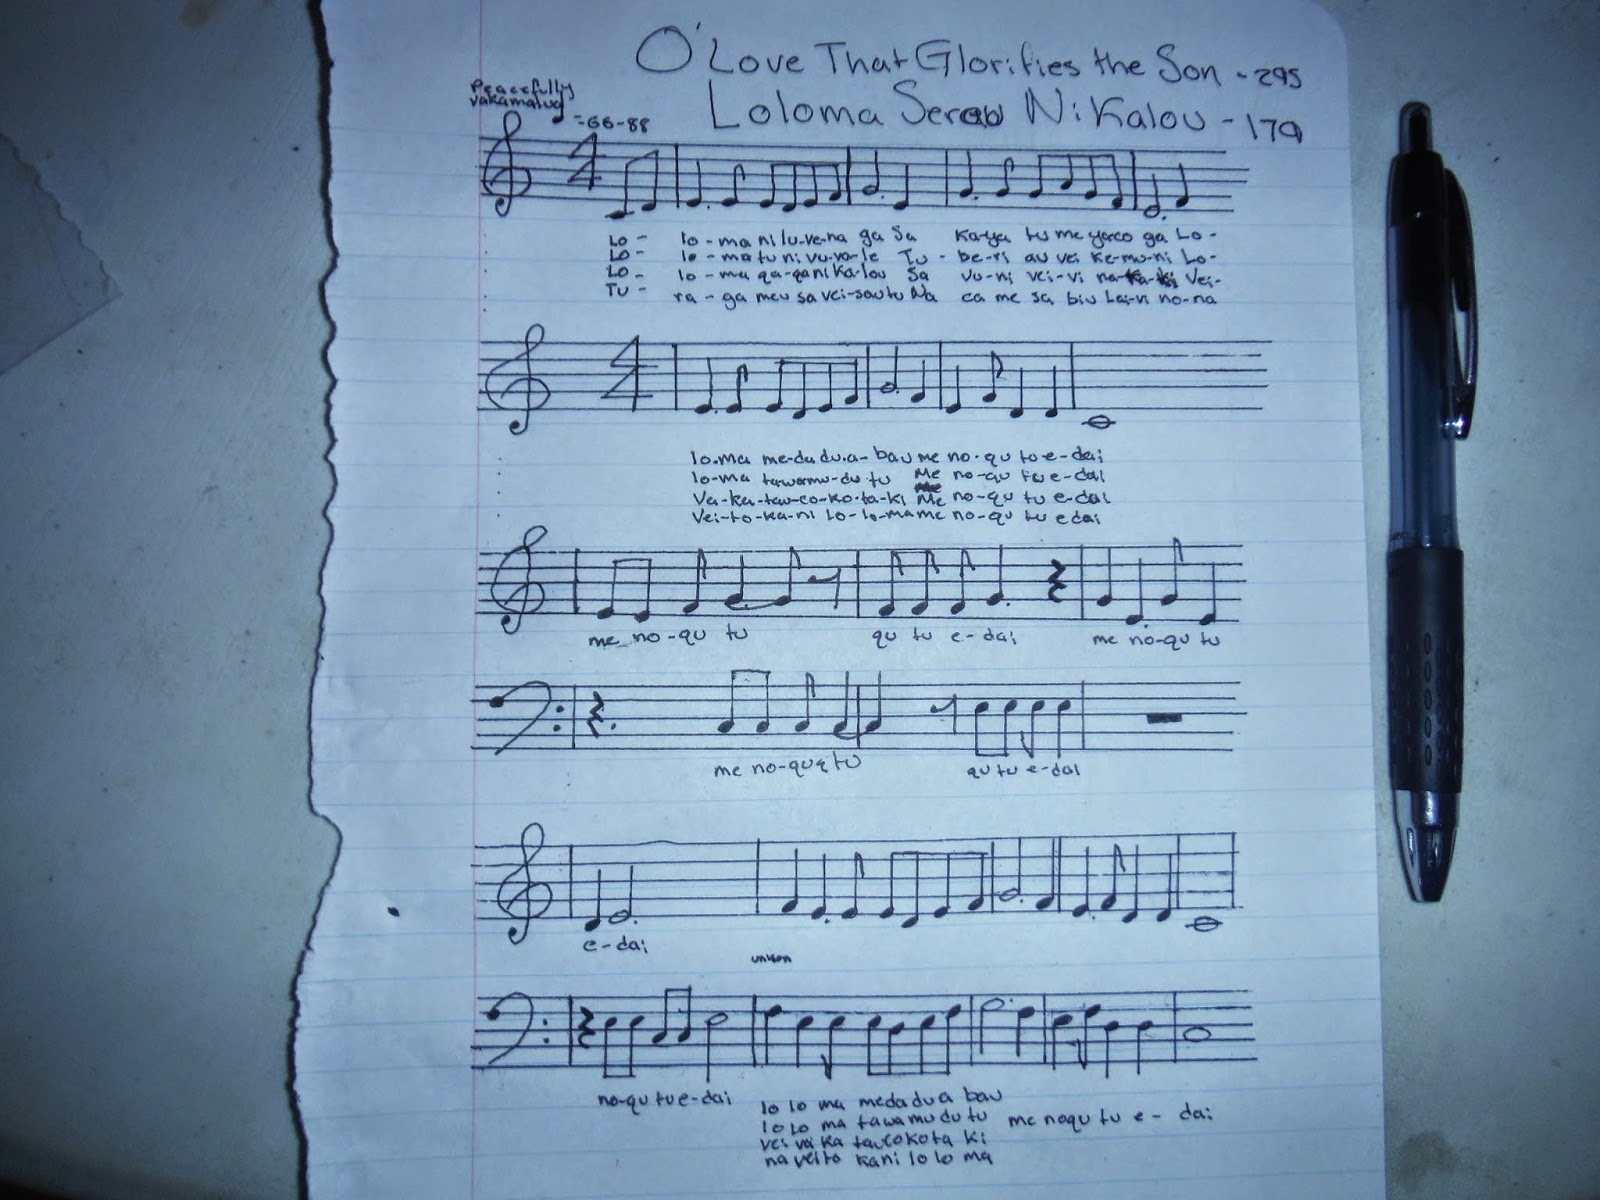 O' Love That Glorifies the Son - 295
Loloma Serau Ni Kalou - 179
Peacefully
vakamalua
=66-88
4
4
Lo - lo-ma ni lu-ve-na ga Sa Ka-ya tu me yaco ga Lo-
Lo - lo-ma tu ni vu-va-le Tu - be-ri au vei Ke-mu-ni Lo-
Lo - lo-ma qa-qa ni Ka-lou Sa vu-ni vei-vi na- Vei-
Tu - ra-ga meu sa vei-sautu Na ca me sa biu Lai-vi no-na
4
4
lo-ma me-da du-a-bau me no-qu tu e-dai
lo-ma tawamu-du tu Me no-qu tu e-dai
Va-ka-tau-co-ko-ta-ki Me no-qu tu e-dai
Vei-to-ka-ni Lo-lo-ma me no-qu tu e dai
me no-qu tu qu tu e-dai me no-qu tu
me no-qu tu qu tu e-dai
e-dai
unison
no-qu tu e-dai
lo lo ma medadua bau
lo lo ma tawamudu tu me noqu tu e - dai
vei va ka taucokota ki
na veito kani lo lo ma